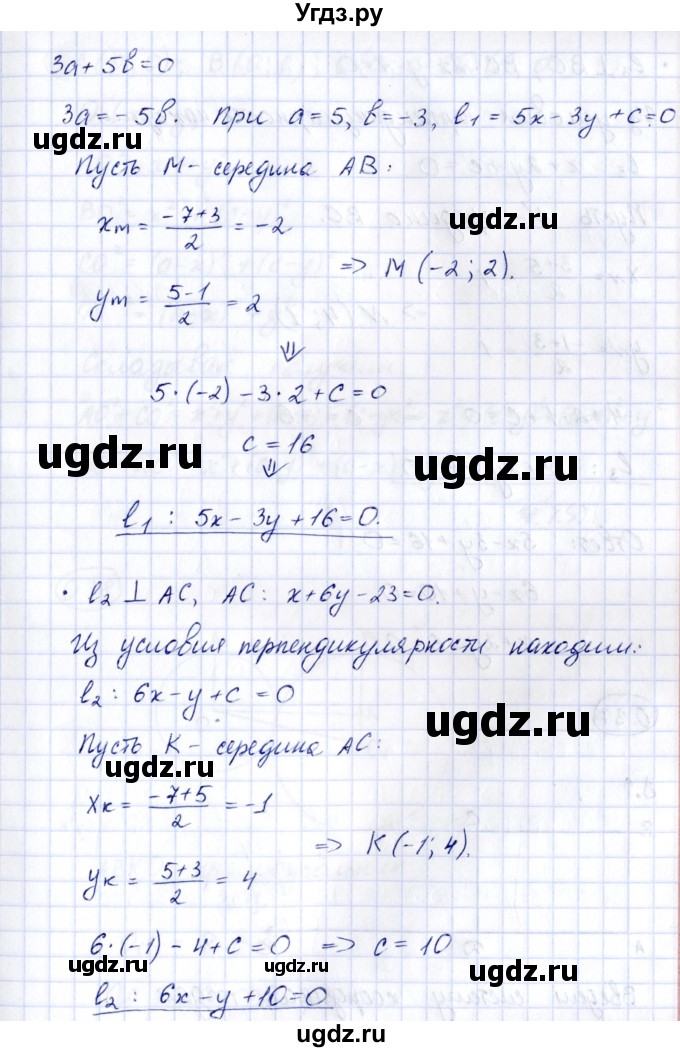 Угдз.ру
3a + 5b = 0
3a = -5b. При a = 5, b = -3, l₁ = 5x - 3y + C = 0
ugdz.ru
Пусть M - середина AB:
ugdz.ru
x_m = (-7+3)/2 = -2
=> M (-2; 2).
y_m = (5-1)/2 = 2
⇓
5·(-2) - 3·2 + C = 0
ugdz.ru
c = 16
ugdz.ru
⇓
l₁ : 5x - 3y + 16 = 0.
· l₂ ⊥ AC, AC: x + 6y - 23 = 0.
Из условия перпендикулярности находим:
l₂ : 6x - y + C = 0
ugdz.ru
Пусть K - середина AC:
ugdz.ru
x_k = (-7+5)/2 = -1
=> K (-1; 4).
y_k = (5+3)/2 = 4
6·(-1) - 4 + C = 0 => c = 10
ugdz.ru
ugdz.ru
l₂ : 6x - y + 10 = 0
ugdz.ru
ugdz.ru